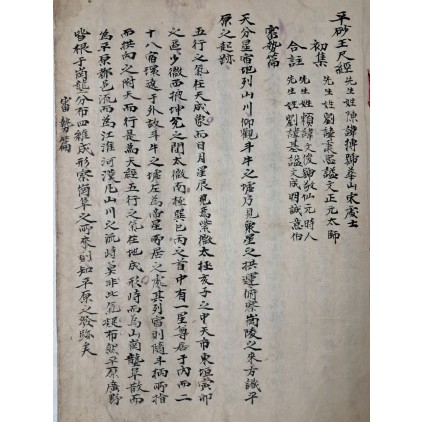 平砂玉尺經
先生姓陳諱摶號華山宋處士
初集
先生姓劉諱秉忠謚文正元太師
先生姓賴諱文俊號敬仙元時人
合註
先生姓劉諱基謚文成明誠意伯
審勢篇
天分星宿地列山川仰觀斗牛之墟乃見衆星之拱運俯察崗陵之來方識平
原之起跡
五行之氣在天成象而日月星辰見焉紫微太極亥子之中天市東垣寅卯
之區少微西掖坤兌之間太微南極巽巳丙之首中有一星尊居于內而二
十八宿環遶于外故斗牛之墟左為帝星所居之處其列宿則隨斗柄所指
而拱向之附天而行是為天經五行之氣在地成形時而為山崗壟阜散而
為平原都邑流而為江淮河漢凡山川之流峙莫非此氣凝布然平原廣野
皆根于崗壟分布四維成形察崗阜之所來則知平原之發跡矣
審勢篇